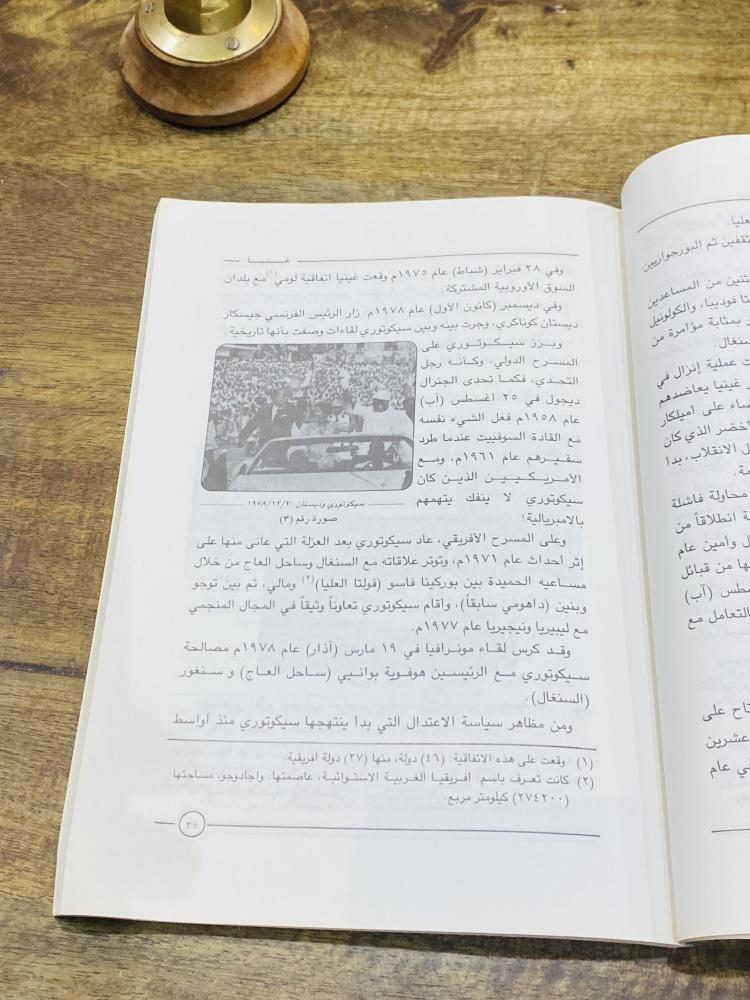 غينيا
وفي ٢٨ فبراير (شباط) عام ١٩٧٥م وقعت غينيا اتفاقية لومي(١) مع بلدان
السوق الأوروبية المشتركة.
وفي ديسمبر (كانون الأول) عام ١٩٧٨م: زار الرئيس الفرنسي جيسكار
ديستان كوناكري، وجرت بينه وبين سيكوتوري لقاءات وصفت بأنها تاريخية.
وبرز سيكوتوري على
المسرح الدولي، وكأنه رجل
التحدي، فكما تحدى الجنرال
ديجول في ٢٥ أغسطس (آب)
عام ١٩٥٨م فعل الشيء نفسه
مع القادة السوفييت عندما طرد
سفيرهم عام ١٩٦١م، ومع
الأمريكيين الذين كان
سيكوتوري لا ينفك يتهمهم
بالامبريالية!
سيكوتوري وديستان ١٩٧٨/١٢/٢٠
صورة رقم (٣)
وعلى المسرح الأفريقي، عاد سيكوتوري بعد العزلة التي عانى منها على
إثر أحداث عام ١٩٧١م، وتوتر علاقاته مع السنغال وساحل العاج من خلال
مساعيه الحميدة بين بوركينا فاسو (فولتا العليا)(٢) ومالي، ثم بين توجو
وبنين (داهومي سابقاً)، وأقام سيكوتوري تعاوناً وثيقاً في المجال المنجمي
مع ليبيريا ونيجيريا عام ١٩٧٧م.
وقد كرس لقاء مونرافيا في ١٩ مارس (آذار) عام ١٩٧٨م مصالحة
سيكوتوري مع الرئيسين هوفوية بوانيي (ساحل العاج) و سنغور
(السنغال).
ومن مظاهر سياسة الاعتدال التي بدأ ينتهجها سيكوتوري منذ أواسط
(١) وقعت على هذه الاتفاقية: (٤٦) دولة، منها (٣٧) دولة أفريقية.
(٢) كانت تعرف باسم: أفريقيا الغربية الاستوائية، عاصمتها: واجادوجو، مساحتها
(٢٧٤٢٠٠) كيلومتر مربع.
٢٥
العليا.
ثقفين ثم البورجوازيين
ثنين من المساعدين
والكولونيل
بمثابة مؤامرة من
سنغال.
ت عملية إنزال في
غينيا يعاضدهم
ضاء على أميلكار
لأخضر الذي كان
ل الانقلاب، بدأ
محاولة فاشلة
ة انطلاقاً من
ل وأمين عام
ها من قبائل
سطس (آب)
التعامل مع
تاح على
عشرين
في عام